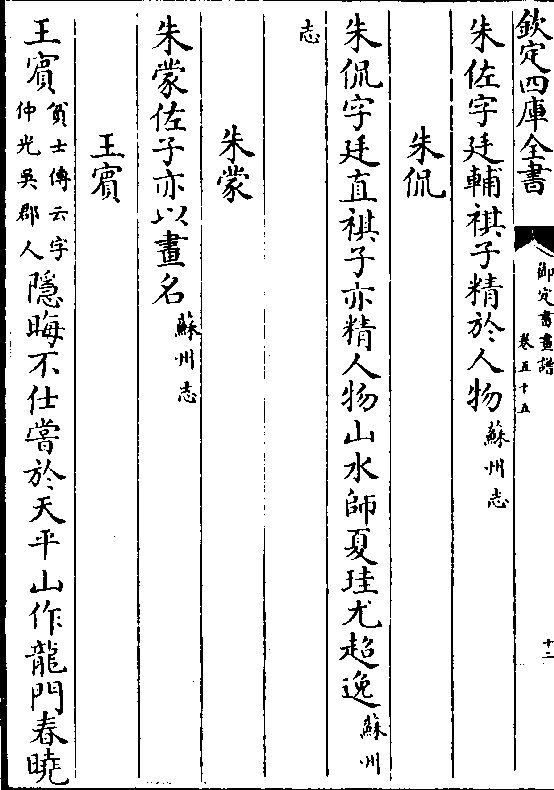 欽定四庫全書
御定書畫譜
卷五十五
十二
朱佐字廷輔祺子精於人物蘇州志
朱侃
朱侃字廷直祺子亦精人物山水師夏珪尤超逸蘇州
志
朱蒙
朱蒙佐子亦以畫名蘇州志
王賓
王賓貧士傳云字仲光吳郡人隱晦不仕嘗於天平山作龍門春曉